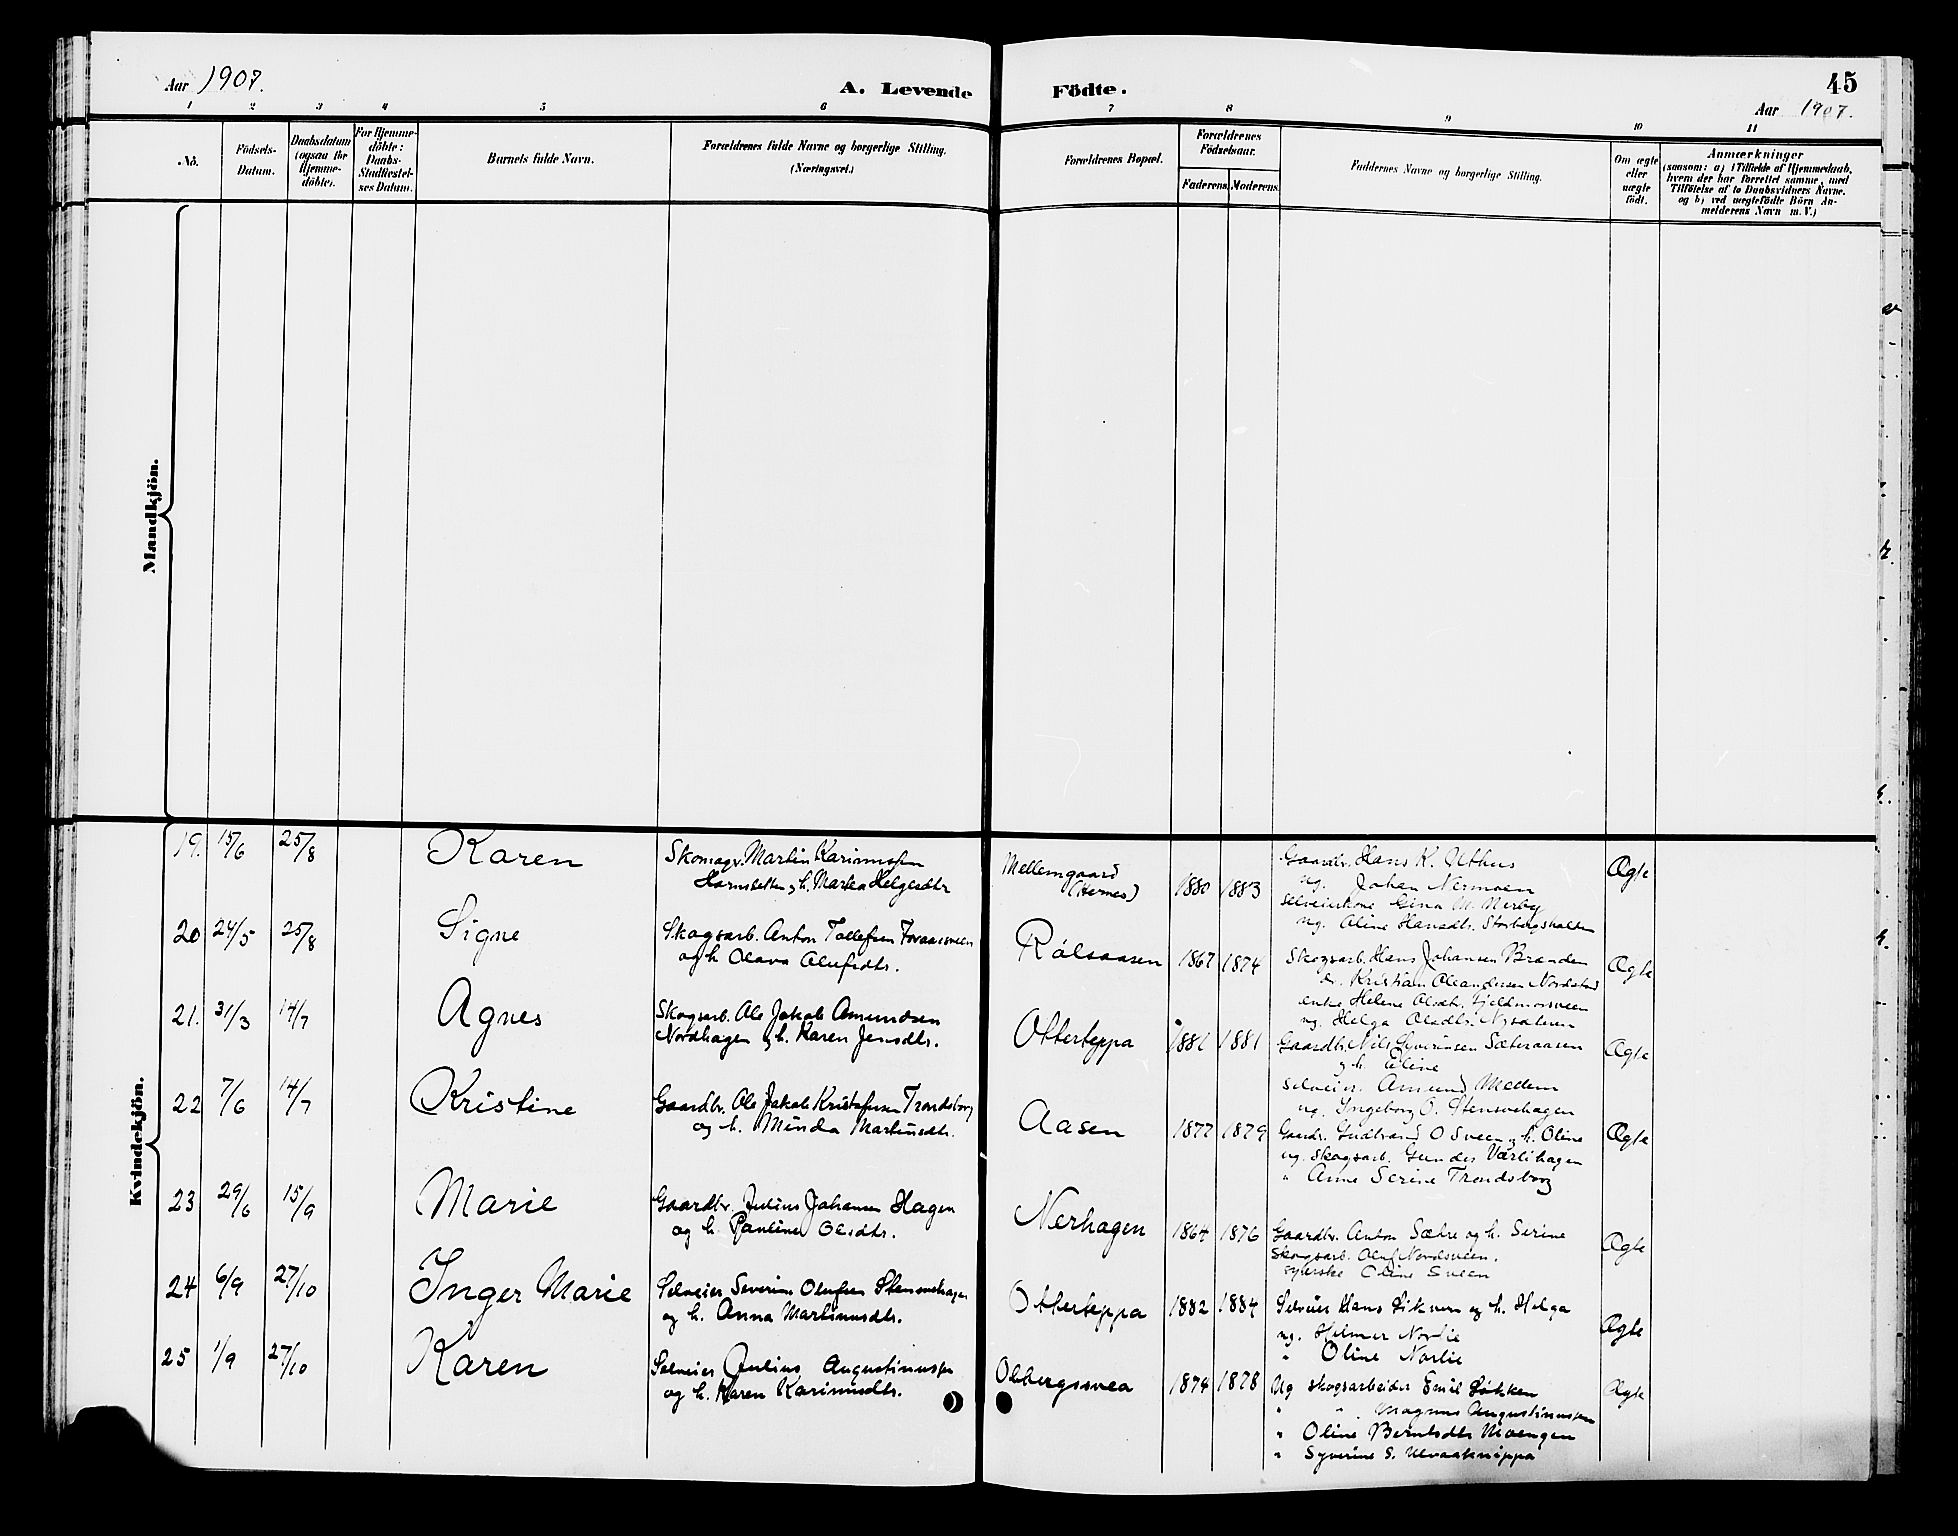 Aar 1907.
A. Levende Födte.
45
Aar 1907.
1 2 3 4 5 6 7 8 9 10 11
No.
Födsels-
Datum.
Daabsdatum
(ogsaa for
Hjemme-
döbte).
For Hjemme-
döbte:
Daabs-
Stadfæstel-
ses Datum.
Barnets fulde Navn.
Forældrenes fulde Navne og borgerlige Stilling.
(Næringsvei.)
Forældrenes Bopæl.
Forældrenes
Födselsaar.
Faderens. Moderens.
Faddernes Navne og borgerlige Stilling.
Om ægte
eller
uægte
födt.
Anmærkninger
(saasom: a) i Tilfælde af Hjemmedaab,
hvem der har forrettet samme, med
Tilföielse af to Daabsvidners Navne.
og b) ved uægtefödte Börn An-
melderens Navn m. V.)
Mandkjön.
Kvindekjön.
19. 15/6 25/8 Karen
Skomagr. Martin Karinussen
Harnsetten og h. Martea Helgesdtr
Mellemgaard
(Hernes)
1880 1883
Gaardbr. Hans K. Uthus
ug. Johan Nermoen
selveierkone Gina M. Nerby
ug. Aline Hansdtr. Storbergshallen
Ægte
20 24/5 25/8 Signe
Skogsarb. Anton Tollefsen
og h. Olava Olufsdtr.
Rölsaasen
1867 1874
Skogsarb. Hans Johansen Brænden
do. Kristian Oleandersen Nordstad
enke Helene Olsdtr.
ug. Helga Olsdtr. Nysæteren
Ægte
21. 31/3 14/7 Agnes
Skogsarb. Ole Jakob Amundsen
Nordhagen og h. Karen Jensdtr.
Otterteppa
1881 1881
Gaardbr. Nils Syverinsen Sæteraasen
og h. Oline
selveier. Amund Mellem
ug. Ingeborg O. Stensvehagen
Ægte
22 7/6 14/7 Kristine
Gaardbr. Ole Jakob Kristofersen Trondsborg
og h. Minda Martinsdtr.
Aasen
1877 1879
Gaardbr. Gudbrand O Sveen og h. Oline
ug. skogsarb. Gunder Værlihagen
" Anne Serine Trondsborg
Ægte
23 29/6 15/9 Marie
Gaardbr. Julius Johansen Hagen
og h. Pauline Olsdtr.
Nerhagen
1864 1876
Gaardbr. Anton Sætre og h. Serine
Skogsarb. Oluf Nordsveen.
syerske Oline Sveen
Ægte
24 6/9 27/10 Inger Marie
Selveier Severin Olufsen Stensvehagen
og h. Anna Martinusdtr.
Otterteppa
1882 1884
Selveier Hans og h. Helga
ug. Helmer Norlie
" Oline Norlie
Ægte
25 1/9 27/10 Karen
Selveier Julius Augustinussen
og h. Karen Karinusdtr.
Olbergssvea
1874 1878
Ug skogsarbeider Emil Løkken
" " Magnus Augustinussen
" Oline Berntsdtr Moengen
" Syverine S. Ulvaaknappa
Ægte